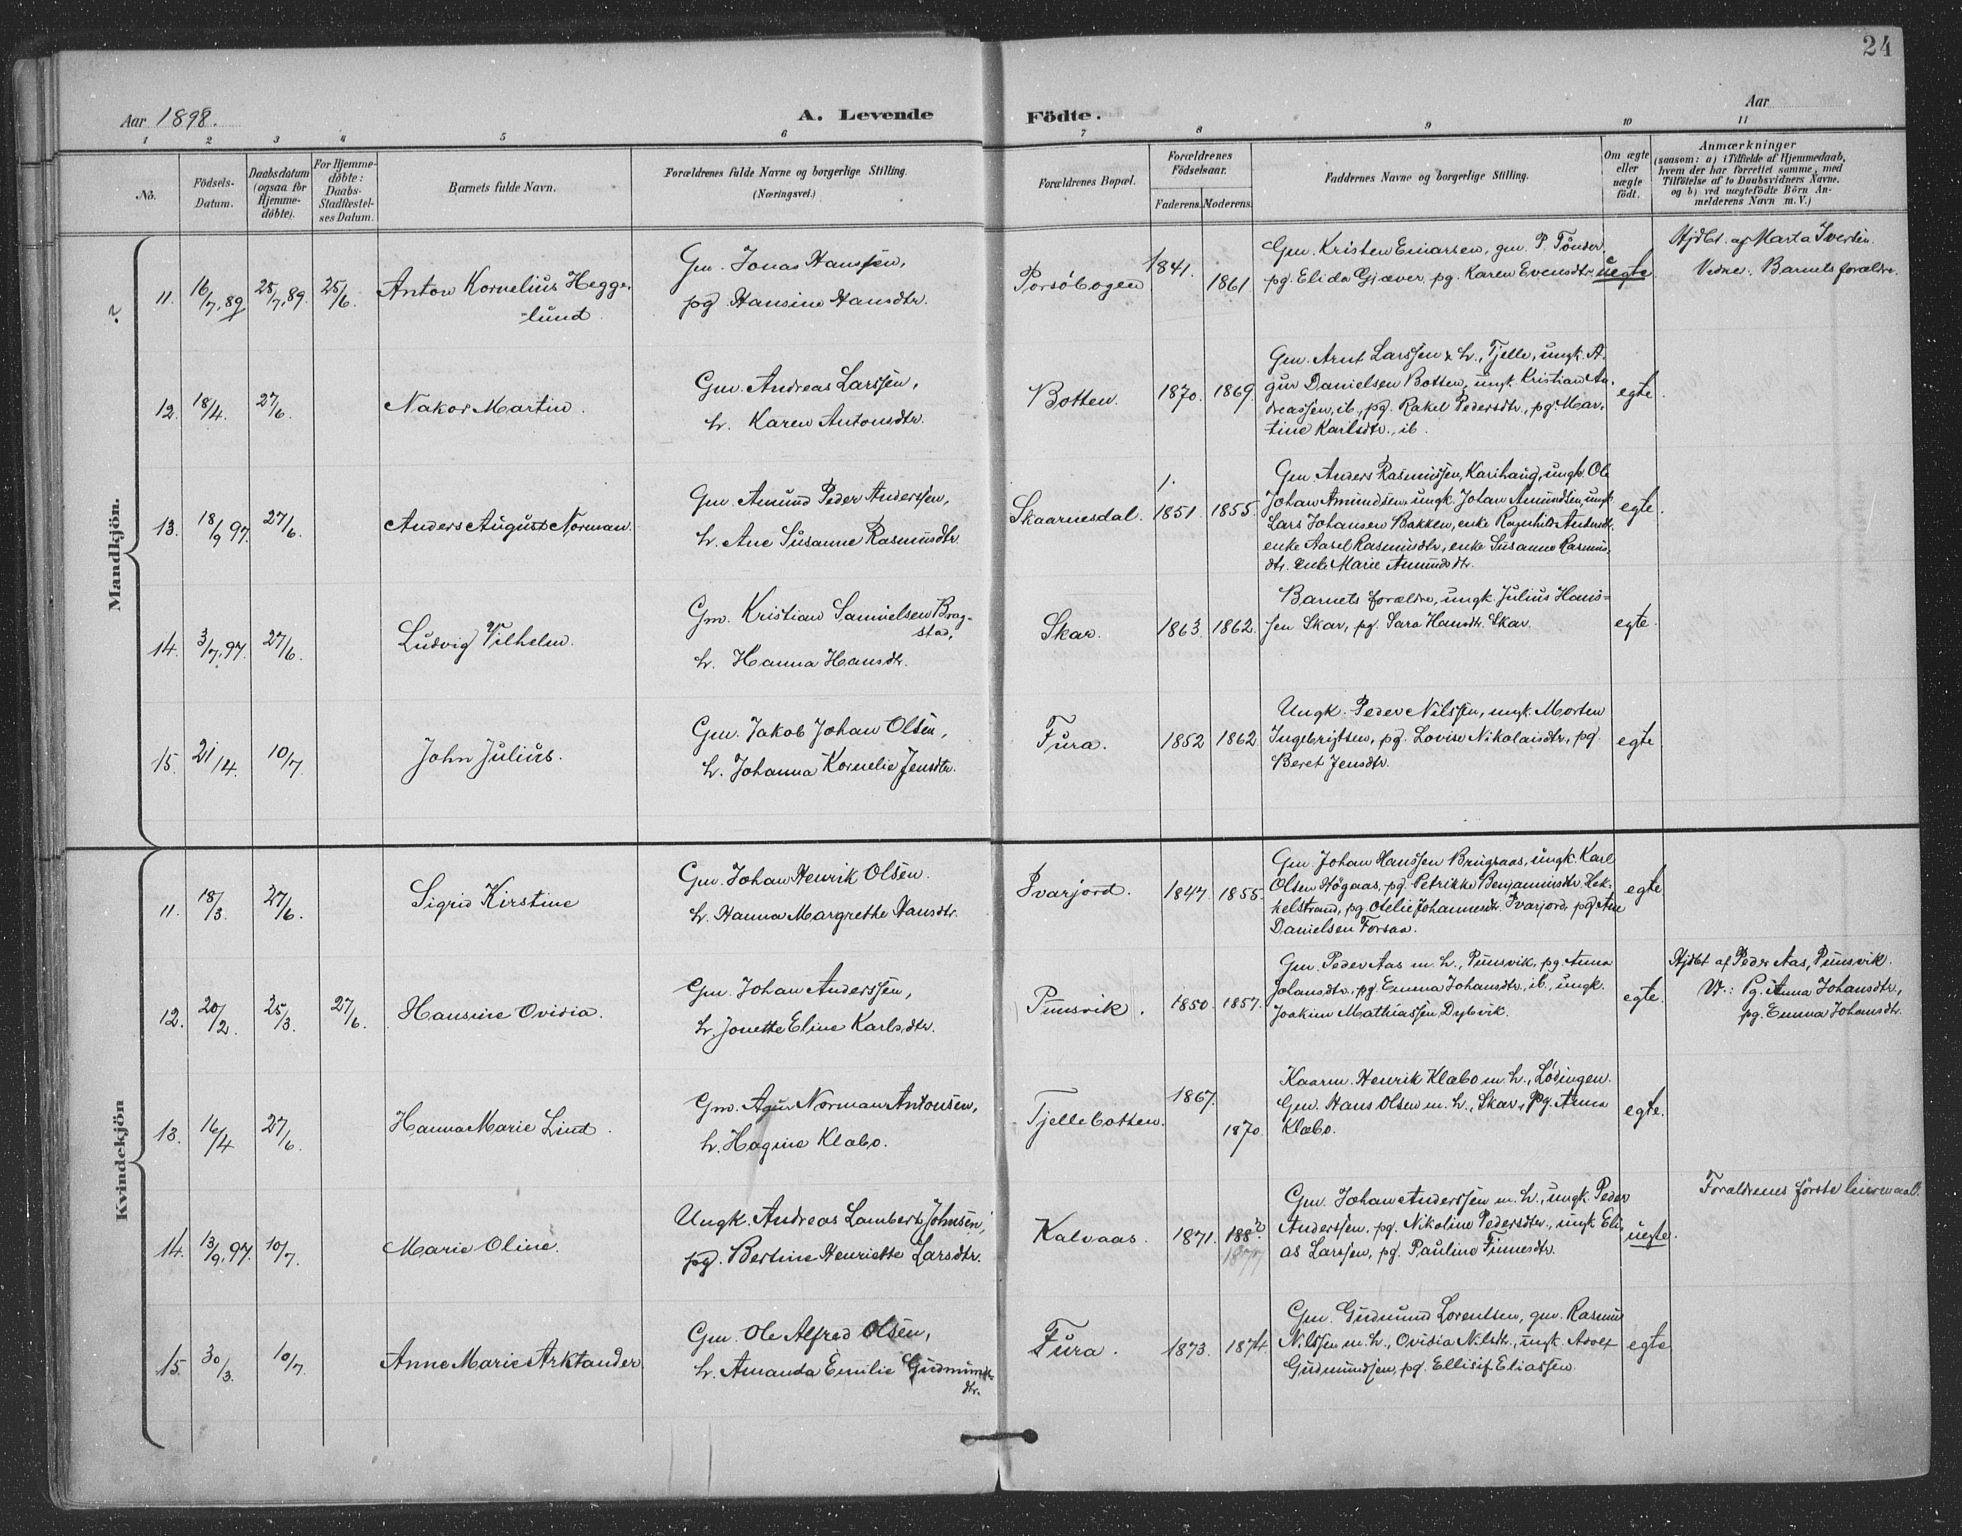 24
Aar 1898.
A. Levende
Födte.
Aar
1 2 3 4 5 6 7 8 9 10 11
No.
Födsels-
Datum.
Daabsdatum
(ogsaa for
Hjemme-
döbte).
For Hjemme-
döbte:
Daabs-
Stadfæstel-
ses Datum.
Barnets fulde Navn.
Forældrenes fulde Navne og borgerlige Stilling.
(Næringsvei.)
Forældrenes Bopæl.
Forældrenes
Födselsaar.
Faderens. Moderens.
Faddernes Navne og borgerlige Stilling.
Om ægte
eller
uægte
födt.
Anmærkninger
(saasom: a) i Tilfælde af Hjemmedaab,
hvem der har forrettet samme, med
Tilföielse af to Daabsvidners Navne,
og b) ved uægtefödte Börn An-
melderens Navn m. V.)
Mandkjön.
11. 16/7, 89 25/7, 89. 25/6.
Anton Kornelius Hegge-
lund.
Gm. Jonas Hanssen,
pg Hansine Hansdtr.
Porsöbogen 1841. 1861
Gm. Kristen Einarsen, gm. P. Tönder,
pg. Elida Gjæver, pg. Karen Evensdtr.
uegte
Hjdbt. af Marta Iversen.
Vidne: Barnets forældre.
12. 18/4. 27/6.
Nakor Martin.
Gm. Andreas Larssen,
h. Karen Antonsdtr.
Botten. 1870. 1869.
Gm. Arnt Larssen & h., Tjelle, ungk. A-
gur Danielsen Botten, ungk. Kristian An-
dreassen, ib., pg. Rakel Pedersdtr., pg. Mar-
tine Karlsdtr., ib.
egte.
13. 18/9 97. 27/6.
Anders August Norman.
Gm. Amund Peder Anderssen,
h. Ane Susanne Rasmusdtr.
Skaarnesdal. 1851. 1855.
Gm. Anders Rasmussen, Karihaug, ungk. Ole
Johan Amundsen, ungk. Johan Amundsen, ungk.
Lars Johansen Bakken, enke Ragnhild Antonsdt.
enke Aasel Rasmusdtr., enke Susanne Rasmus-
dtr. enke Marie Amundsdtr.
egte.
14. 3/7, 97. 27/6.
Ludvig Vilhelm.
Gm. Kristian Samuelsen Brag-
stad,
h. Hanna Hansdtr.
Skar. 1863. 1862.
Barnets forældre, ungk. Julius Hans-
sen Skar, pg. Sara Hansdtr. Skar.
egte.
15. 21/4. 10/7.
John Julius.
Gm. Jakob Johan Olsen,
h. Johanna Kornelie Jensdtr.
Fura. 1852 1862.
Ungk. Peder Nilssen, ungk. Morten
Ingebrigtsen, pg. Lovise Nikolaisdtr., pg.
Beret Jensdtr.
egte.
Kvindekjön
11. 18/3. 27/6.
Sigrid Kirstine
Gm. Johan Henrik Olsen.
h. Hanna Margrethe Hansdtr.
Svarjord. 1847. 1855.
Gm. Johan Hanssen Brugsaas, ungk. Karl
Olsen Högaas, pg. Petrikke Benjaminsdtr. Hek-
kelstrand, pg. Otelie Johannesdtr. Svarjord, pg Ane
Danielsen Forsaa.
egte
12. 20/2. 25/3. 27/6.
Hansine Ovidia.
Gm. Johan Anderssen,
h. Jonette Eline Karlsdtr.
Punsvik. 1850. 1857.
Gm. Peder Aas m. h., Punsvik, pg. Anna
Johansdtr., pg Emma Johansdtr. ib., ungk.
Joakim Mathiassen Dybvik.
egte.
Hjdbt af Peder Aas, Punsvik.
Vd.: Pg. Anna Johansdtr,
pg. Emma Johansdtr.
13. 16/4 27/6.
Hanna Marie Lind.
Gm. Agur Norman Antonsen,
h. Hagine Klæbo.
Tjellebotten. 1867. 1870.
Kaarm. Henrik Klæbo m. h., Lödingen.
Gm. Hans Olsen m. h., Skar, pg. Anna
Klæbo.
egte.
14. 13/9, 97. 10/7.
Marie Oline.
Ungk. Andreas Lambert Johnsen,
pg. Bertine Henriette Larsdtr.
Kalvaas. 1871. 1882
1877
Gm. Johan Anderssen m. h., ungk. Peder
Anderssen, pg. Nikoline Pedersdtr., ungk. Eli-
as Larssen, pg. Pauline Finnesdtr.
uegte.
Forældrenes förste leiermaal.
15. 30/3. 10/7.
Anne Marie Arktander
Gm. Ole Alfred Olsen,
h. Amanda Emilie Gudmunds-
dtr.
Fura. 1873. 1874.
Gm. Gudmund Lorentsen, gm. Rasmus
Nilssen m. h., Ovidia Nilsdtr., ungk. Adolf
Gudmundsen, pg. Ellisif Eliassen.
egte